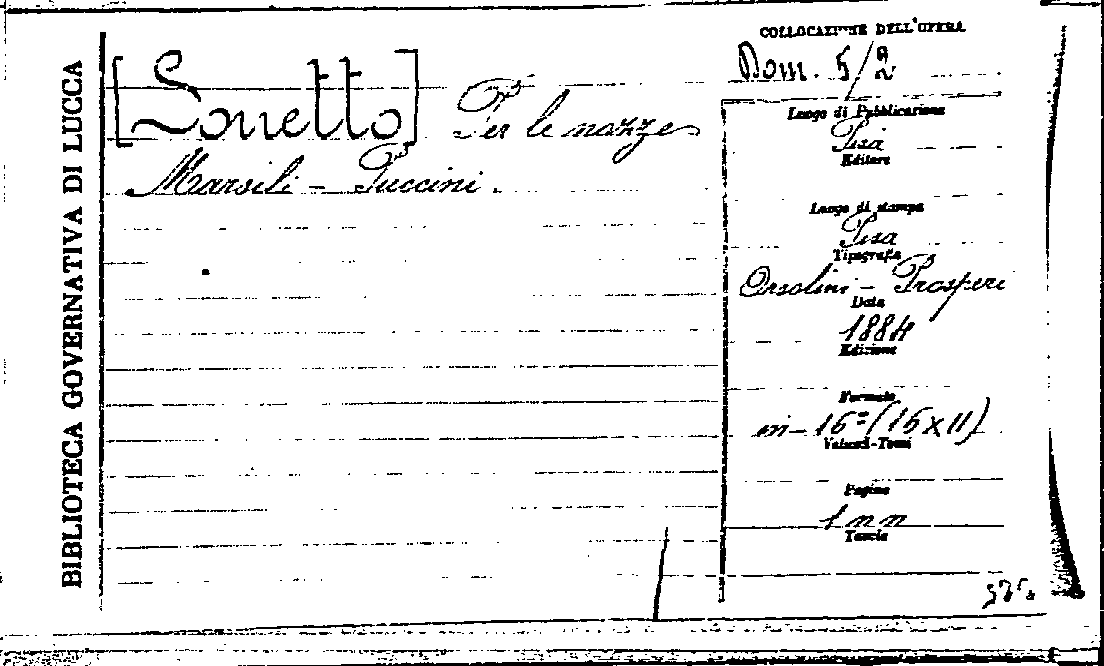 BIBLIOTECA GOVERNATIVA DI LUCCA
[Sonetto] Per le nozze
Marsili - Puccini.
COLLOCAZIONE DELL'OPERA
Dom. 5/2
Luogo di Pubblicazione
Pisa
Editore
Luogo di stampa
Pisa
Tipografia
Orsolini - Prosperi
Data
1884
Edizione
Formato
in-16=(16x11)
Volumi-Tomi
Pagine
1 nn
Tavole